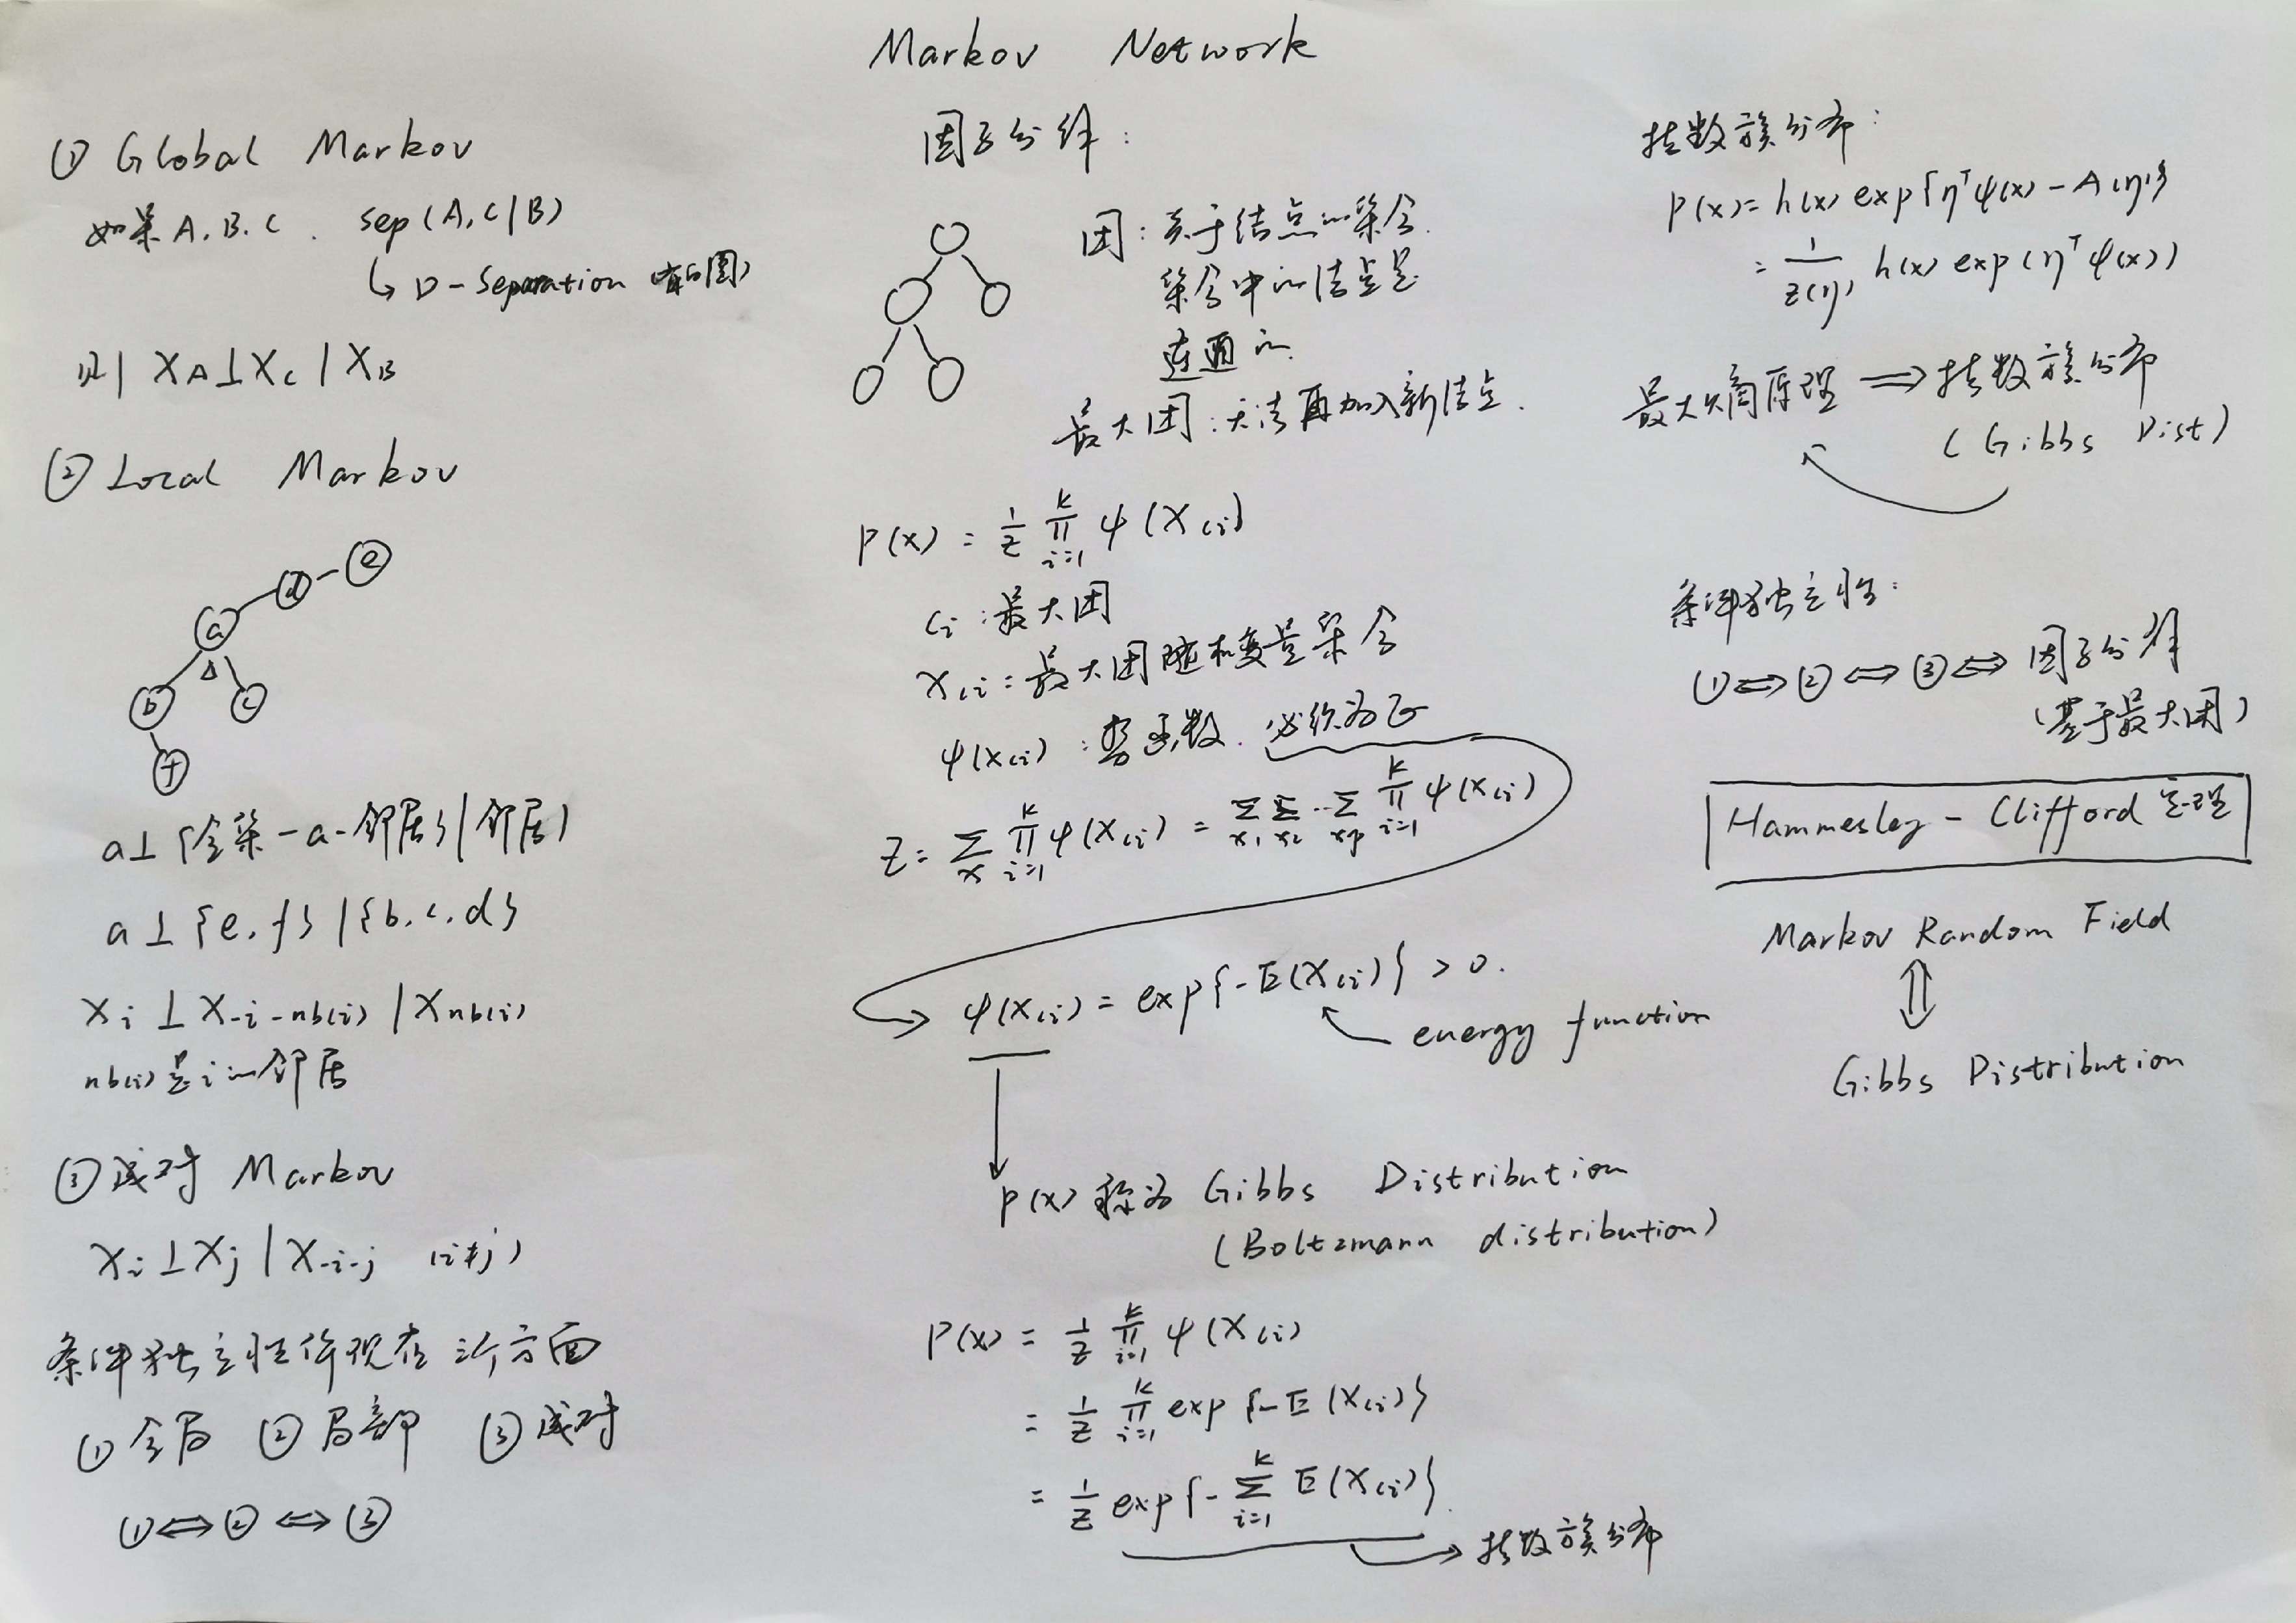 Markov Network
① Global Markov
如果 A. B. C . sep(A, C | B)
↳ D-Separation (有向图)
则 X_A ⊥ X_C | X_B
② Local Markov
e
d
a
b
c
f
a ⊥ {全集 - a - 邻居} | 邻居}
a ⊥ {e, f} | {b, c, d}
x_i ⊥ x_{-i-nb(i)} | x_{nb(i)}
nb(i) 是 i 的邻居
③ 成对 Markov
x_i ⊥ x_j | x_{-i-j} (i≠j)
条件独立性体现在三个方面
① 全局 ② 局部 ③ 成对
① ⇔ ② ⇔ ③
因子分解:
团: 关于结点的集合.
集合中的结点是
连通的.
最大团: 无法再加入新结点.
P(x) = 1/Z ∏_{i=1}^{K} ψ(x_{ci})
c_i : 最大团
x_{ci} : 最大团随机变量集合
ψ(x_{ci}) : 势函数. 必须为正
Z = ∑_x ∏_{i=1}^{K} ψ(x_{ci}) = ∑_{x1} ∑_{x2} … ∑_{xp} ∏_{i=1}^{K} ψ(x_{ci})
ψ(x_{ci}) = exp{-E(x_{ci})} > 0.
energy function
P(x) 称为 Gibbs Distribution
(Boltzmann distribution)
P(x) = 1/Z ∏_{i=1}^{K} ψ(x_{ci})
= 1/Z ∏_{i=1}^{K} exp{-E(x_{ci})}
= 1/Z exp{-∑_{i=1}^{K} E(x_{ci})}
→ 指数族分布
指数族分布:
P(x) = h(x) exp{η^T ψ(x) - A(η)}
= 1/Z(η) h(x) exp(η^T ψ(x))
最大熵原理 ⇒ 指数族分布
(Gibbs Dist)
条件独立性:
① ⇔ ② ⇔ ③ ⇔ 因子分解
(基于最大团)
Hammesley - Clifford 定理
Markov Random Field
⇕
Gibbs Distribution